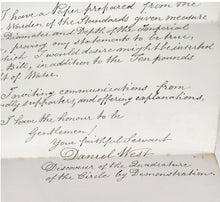 I have a Paper prepared from one
Warden of the Standards given measure
Diameter and Depth of the Imperial
, proving my statements to be true,
which I would desire might be inserted
Bill, in addition to the Ten pounds
t of Water.
Inviting communications from
dly supporters, and offering explanations,
I have the honour to be
Gentlemen,
Your faithful Servant
Daniel West
Discoverer of the Quadrature
of the Circle by Demonstration.